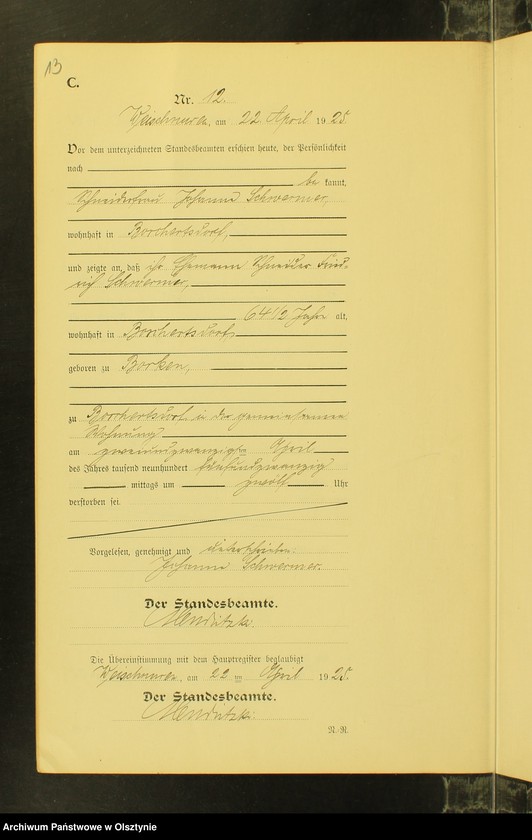 13
C.
Nr. 12.
am 22 April 1925
Vor dem unterzeichneten Standesbeamten erschien heute, der Persönlichkeit
nach
be kannt,
Schneiderfrau Johanne Schwermer,
wohnhaft in Borchertsdorf,
und zeigte an, daß ihr Ehemann Schneider Fried-
rich Schwermer,
64 1/2 Jahre alt,
wohnhaft in Borchertsdorf,
geboren zu Borken,
zu Borchertsdorf in der gemeinsamen
Wohnung
am zweiundzwanzigsten April
des Jahres tausend neunhundert fünfundzwanzig
mittags um zwölf Uhr
verstorben sei.
Vorgelesen, genehmigt und unterschrieben:
Johanne Schwermer.
Der Standesbeamte.
Die Übereinstimmung mit dem Hauptregister beglaubigt
am 22 ten April 1925.
Der Standesbeamte.
N.-N.
Archiwum Państwowe w Olsztynie